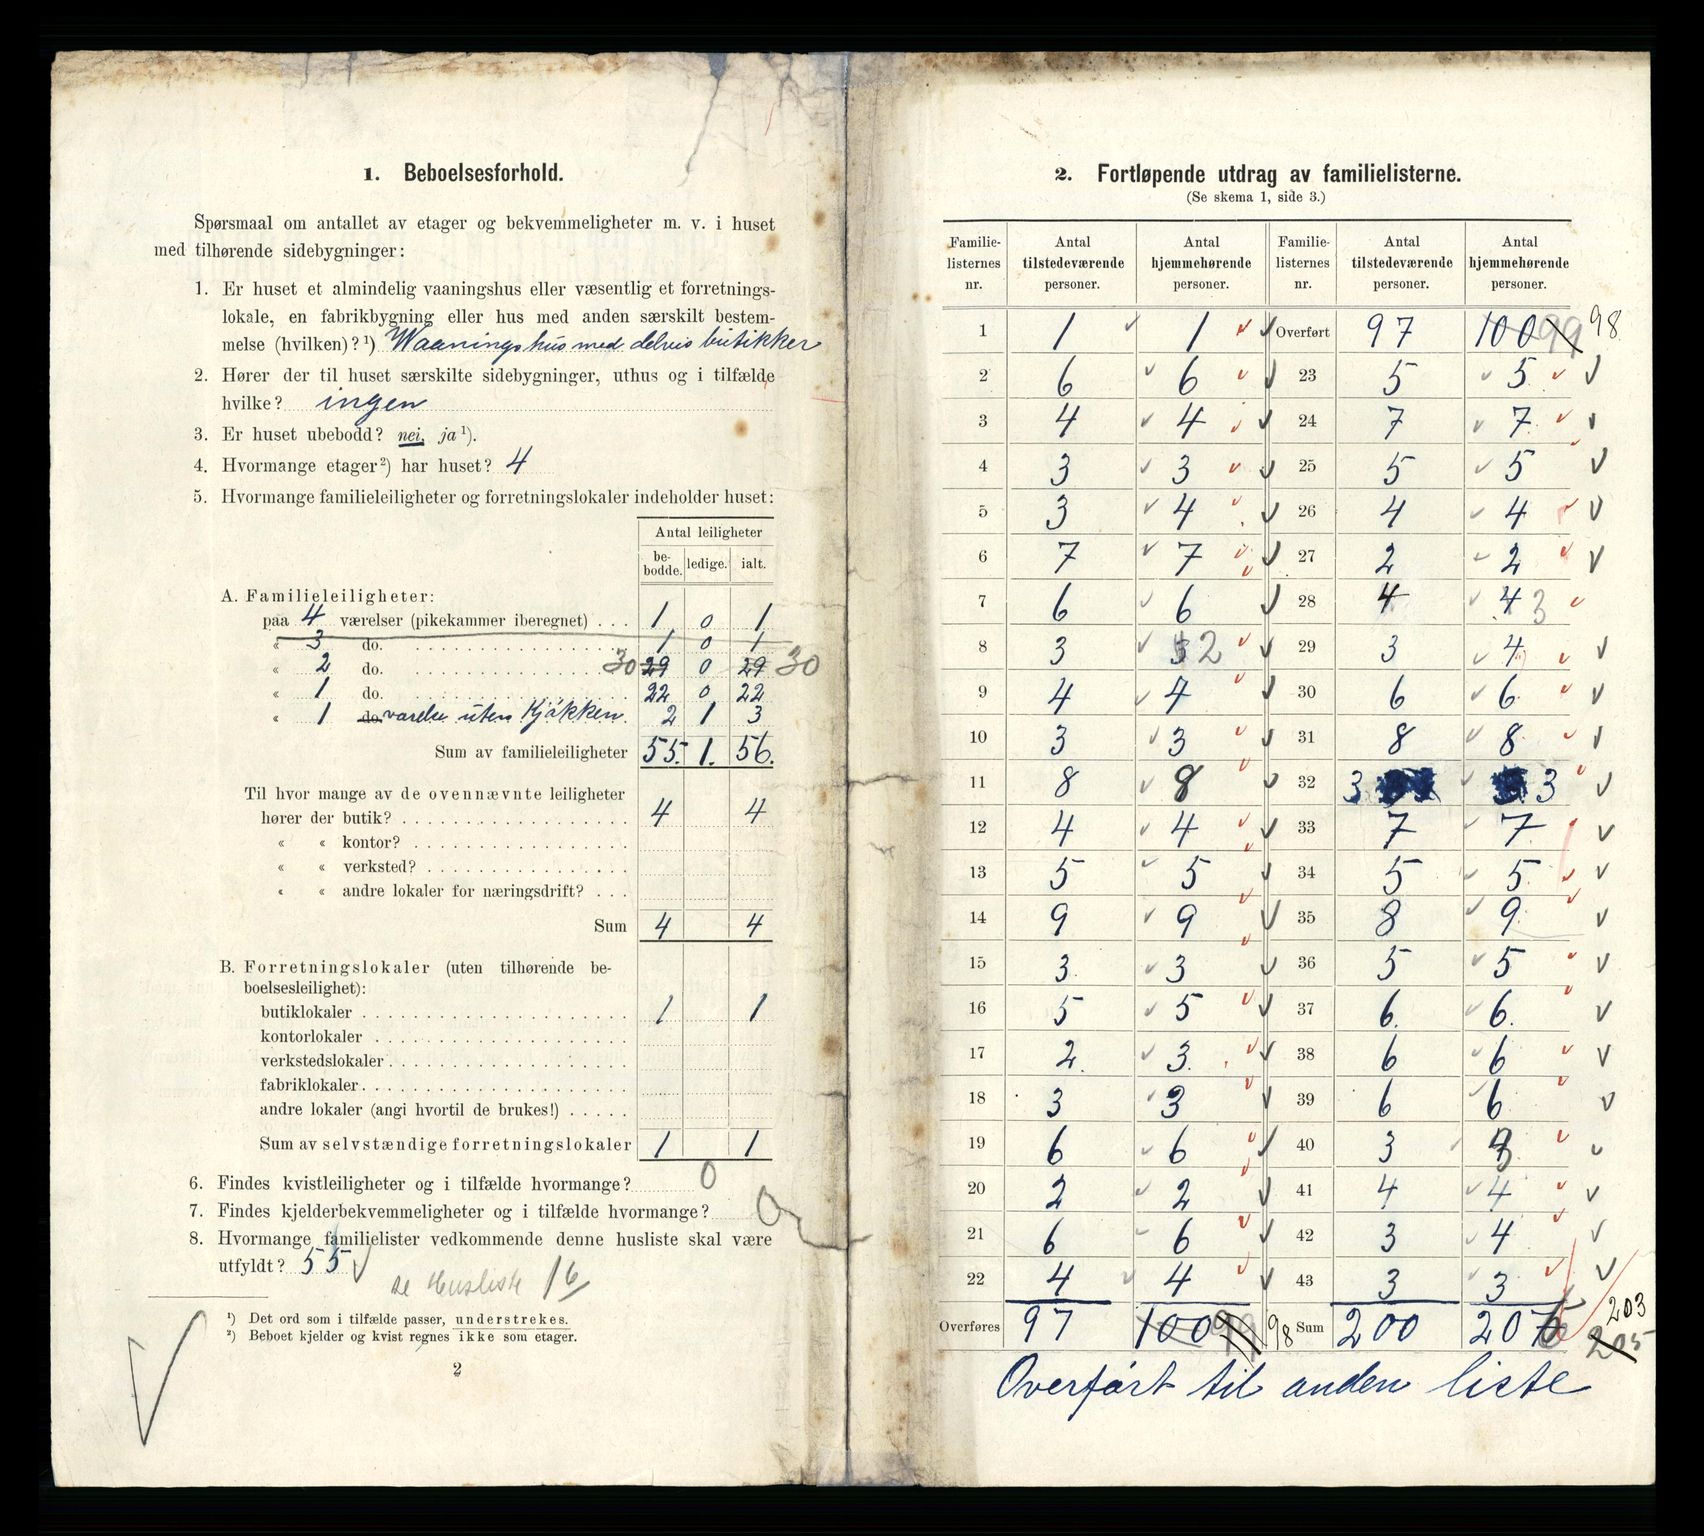 1. Beboelsesforhold.
Spørsmaal om antallet av etager og bekvemmeligheter m. v. i huset
med tilhørende sidebygninger:
1. Er huset et almindelig vaaningshus eller væsentlig et forretnings-
lokale, en fabrikbygning eller hus med anden særskilt bestem-
melse (hvilken)? ¹) Waaningshus med delvis butikker
2. Hører der til huset særskilte sidebygninger, uthus og i tilfælde
hvilke? ingen
3. Er huset ubebodd? nei, ja ¹).
4. Hvormange etager ²) har huset? 4
5. Hvormange familieleiligheter og forretningslokaler indeholder huset:
Antal leiligheter
be-bodde. ledige. ialt.
A. Familieleiligheter:
paa 4 værelser (pikekammer iberegnet) . . . 1 0 1
« 3 do. 1 0 1
« 2 do. 30 29 0 29 30
« 1 do. 22 0 22
« 1 do værelse uten Kjøkken. 2 1 3
Sum av familieleiligheter 55. 1. 56.
Til hvor mange av de ovennævnte leiligheter
hører der butik? 4 4
« « kontor?
« « verksted?
« « andre lokaler for næringsdrift? . . .
Sum 4 4
B. Forretningslokaler (uten tilhørende be-
boelsesleilighet):
butiklokaler 1 1
kontorlokaler
verkstedslokaler
fabriklokaler
andre lokaler (angi hvortil de brukes!)
Sum av selvstændige forretningslokaler 1 1
6. Findes kvistleiligheter og i tilfælde hvormange? 0
7. Findes kjelderbekvemmeligheter og i tilfælde hvormange? 0
8. Hvormange familielister vedkommende denne husliste skal være
utfyldt? 55
se Husliste 16
¹) Det ord som i tilfælde passer, understrekes.
²) Beboet kjelder og kvist regnes ikke som etager.
2
2. Fortløpende utdrag av familielisterne.
(Se skema 1, side 3.)
Familie-listernes nr. Antal tilstedeværende personer. Antal hjemmehørende personer. Familie-listernes nr. Antal tilstedeværende personer. Antal hjemmehørende personer.
1 1 1 Overført 97 100 99 98
2 6 6 23 5 5
3 4 4 24 7 7
4 3 3 25 5 5
5 3 4 26 4 4
6 7 7 27 2 2
7 6 6 28 4 4 3
8 3 3 2 29 3 4
9 4 4 30 6 6
10 3 3 31 8 8
11 8 8 32 3 3
12 4 4 33 7 7
13 5 5 34 5 5
14 9 9 35 8 9
15 3 3 36 5 5
16 5 5 37 6 6
17 2 3 38 6 6
18 3 3 39 6 6
19 6 6 40 3 3
20 2 2 41 4 4
21 6 6 42 3 4
22 4 4 43 3 3
Overføres 97 100 99 98 Sum 200 207 6 205 203
Overført til anden liste